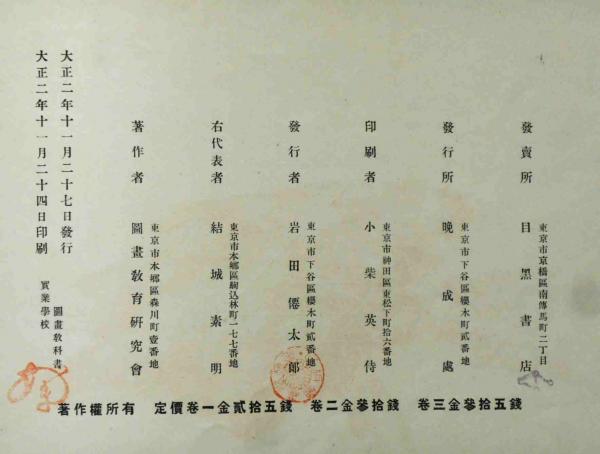 大正二年十一月二十四日印刷
大正二年十一月二十七日發行
實業學校
圖畫教科書
著作者 圖畫教育研究會
東京市本鄉區森川町壹番地
右代表者 結城素明
東京市本鄉區駒込林町一七七番地
發行者 岩田僊太郎
東京市下谷區櫻木町貳番地
印刷者 小柴英侍
東京市神田區東松下町拾六番地
發行所 晚成處
東京市下谷區櫻木町貳番地
發賣所 目黑書店
東京市京橋區南傳馬町二丁目
著作權所有 定價卷一金貳拾五錢 卷二金參拾錢 卷三金參拾五錢